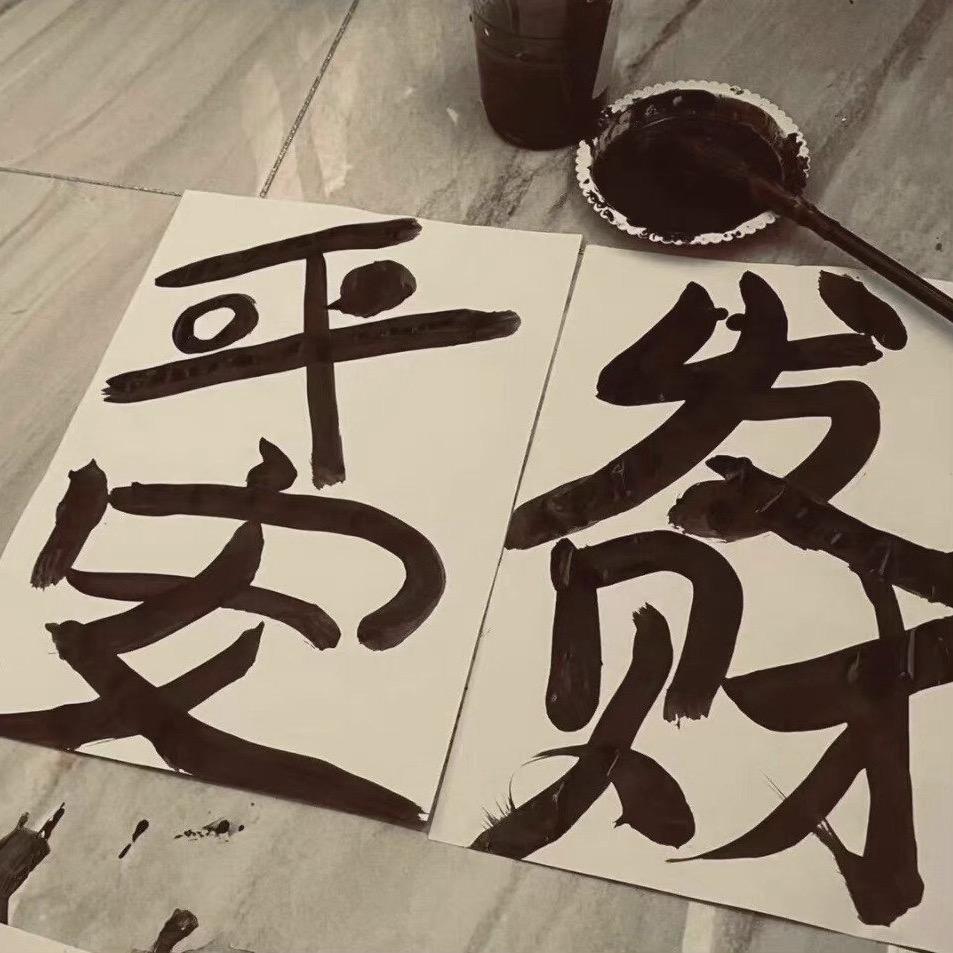 平安
发财